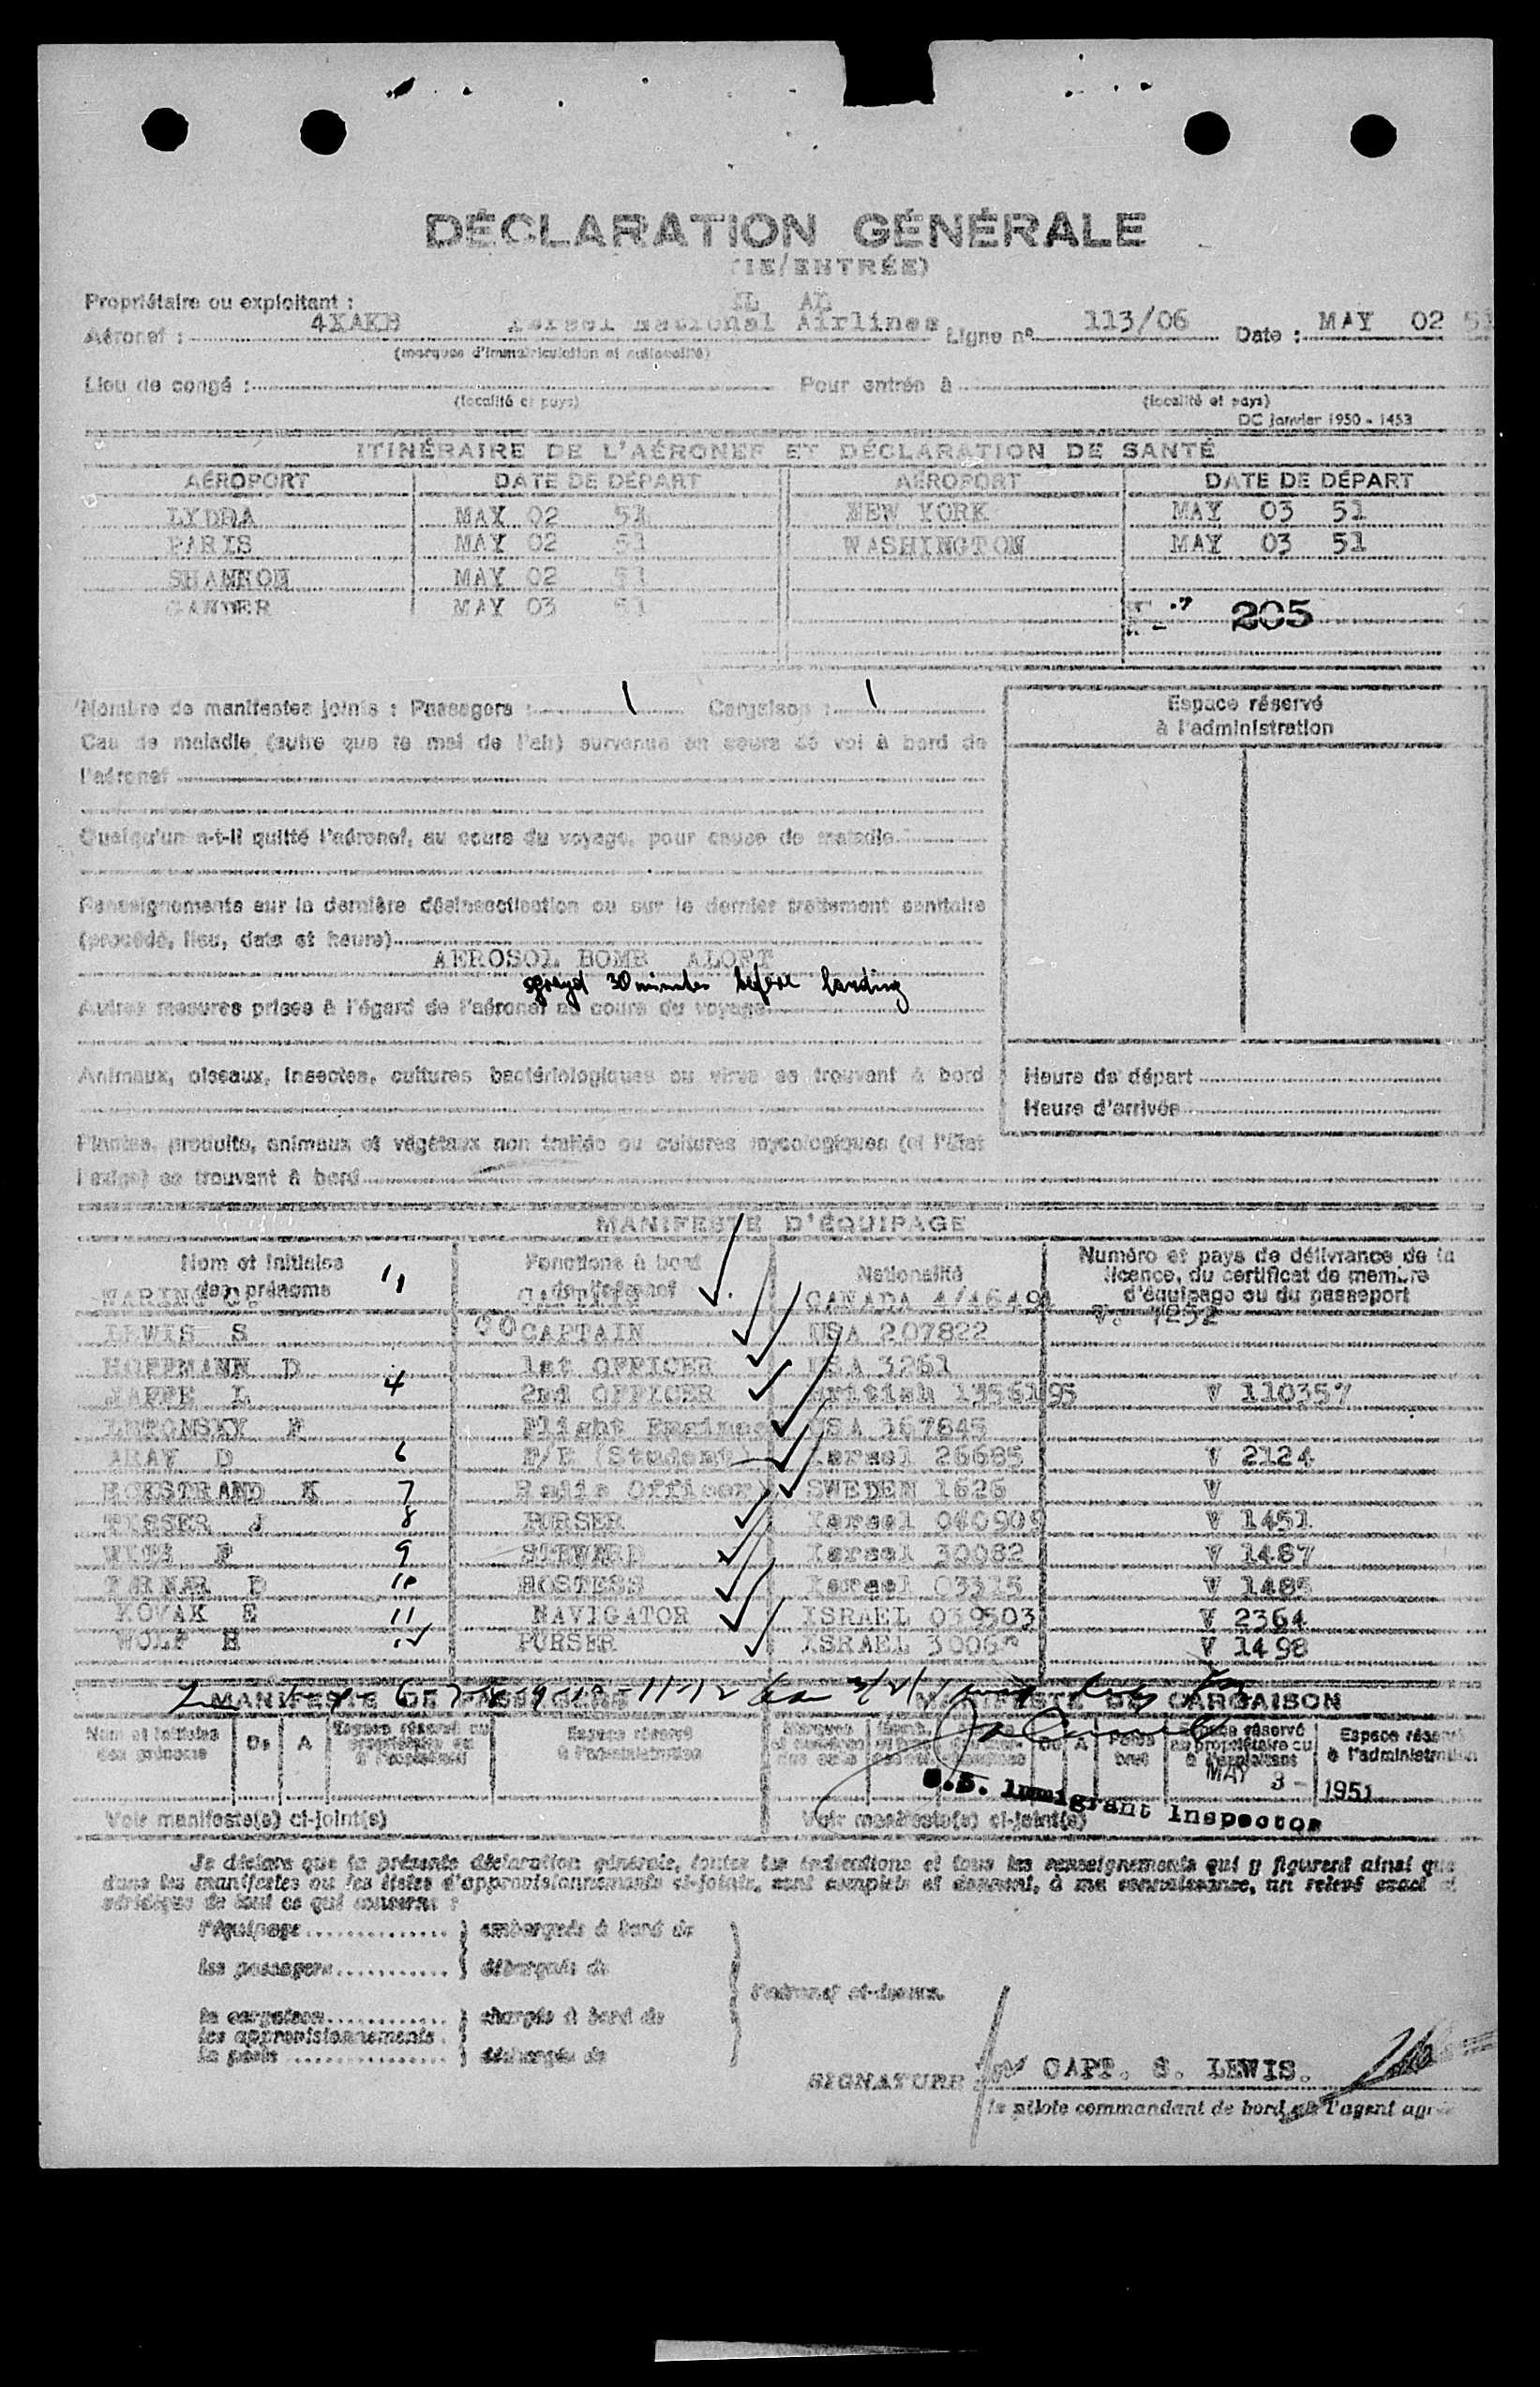 DÉCLARATION GÉNÉRALE
IE/ENTRÉE)
Propriétaire ou exploitant : EL AL
Aéronef : 4XAKB Israel National Airlines Ligne nº 113/06 Date : MAY 02 51
(marques d'immatriculation et nationalité)
Lieu de congé : Pour entrée à
(localité et pays) (localité et pays)
DC janvier 1950 - 1453
ITINÉRAIRE DE L'AÉRONEF ET DÉCLARATION DE SANTÉ
AÉROPORT DATE DE DÉPART AÉROPORT DATE DE DÉPART
LYDDA MAY 02 51 NEW YORK MAY 03 51
PARIS MAY 02 51 WASHINGTON MAY 03 51
SHANNON MAY 02 51
GANDER MAY 03 51
205
Nombre de manifestes joints : Passagers : 1 Cargaison : 1
Espace réservé
à l'administration
Cas de maladie (autre que le mal de l'air) survenus en cours de vol à bord de
l'aéronef
Quelqu'un a-t-il quitté l'aéronef, au cours du voyage, pour cause de maladie
Renseignements sur la dernière désinsectisation ou sur le dernier traitement sanitaire
(procédé, lieu, date et heure)
AEROSOL BOMB ALOFT
sprayed 30 minutes before landing
Autres mesures prises à l'égard de l'aéronef au cours du voyage
Animaux, oiseaux, insectes, cultures bactériologiques ou virus se trouvant à bord
Heure de départ
Heure d'arrivée
Plantes, produits, animaux et végétaux non traités ou cultures mycologiques (si l'État
l'exige) se trouvant à bord
MANIFESTE D'ÉQUIPAGE
Nom et initiales des prénoms
Fonctions à bord de l'aéronef
Nationalité
Numéro et pays de délivrance de la
licence, du certificat de membre
d'équipage ou du passeport
WARING C. 11 CAPTAIN CANADA V. 1252
LEWIS S CAPTAIN USA 207822
HOFFMANN D 1st OFFICER USA 3261
JAFFE L 4 2nd OFFICER British 1356195 V 110357
F Flight Engineer USA 167845
ARAV D 6 F/E (Student) Israel 26685 V 2124
HOKSTRAND K 7 Radio Officer SWEDEN 1626 V
TISSER J 8 PURSER Israel 040909 V 1451
F 9 STEWARD Israel 30082 V 1487
D 10 HOSTESS Israel 03315 V 1485
KOVAK E 11 NAVIGATOR ISRAEL 039503 V 2364
WOLF H PURSER ISRAEL V 1498
MANIFESTE DE PASSAGERS MANIFESTE DE CARGAISON
Nom et initiales
des prénoms
De A
Espace réservé au
propriétaire ou
à l'exploitant
Espace réservé
à l'administration
De A
Poids
brut
Espace réservé
au propriétaire ou
à l'exploitant
Espace réservé
à l'administration
MAY 3 - 1951
U.S. Immigrant Inspector
Voir manifeste(s) ci-joint(s) Voir manifeste(s) ci-joint(s)
Je déclare que la présente déclaration générale, toutes les indications et tous les renseignements qui y figurent ainsi que
dans les manifestes ou les listes d'approvisionnements ci-joints, sont complets et donnent, à ma connaissance, un relevé exact et
véridique de tout ce qui concerne :
l'équipage embarqués à bord de
les passagers débarqués de
l'aéronef ci-dessus.
la cargaison chargés à bord de
les approvisionnements
la poste déchargés de
SIGNATURE : CAPT. S. LEWIS.
le pilote commandant de bord ou l'agent